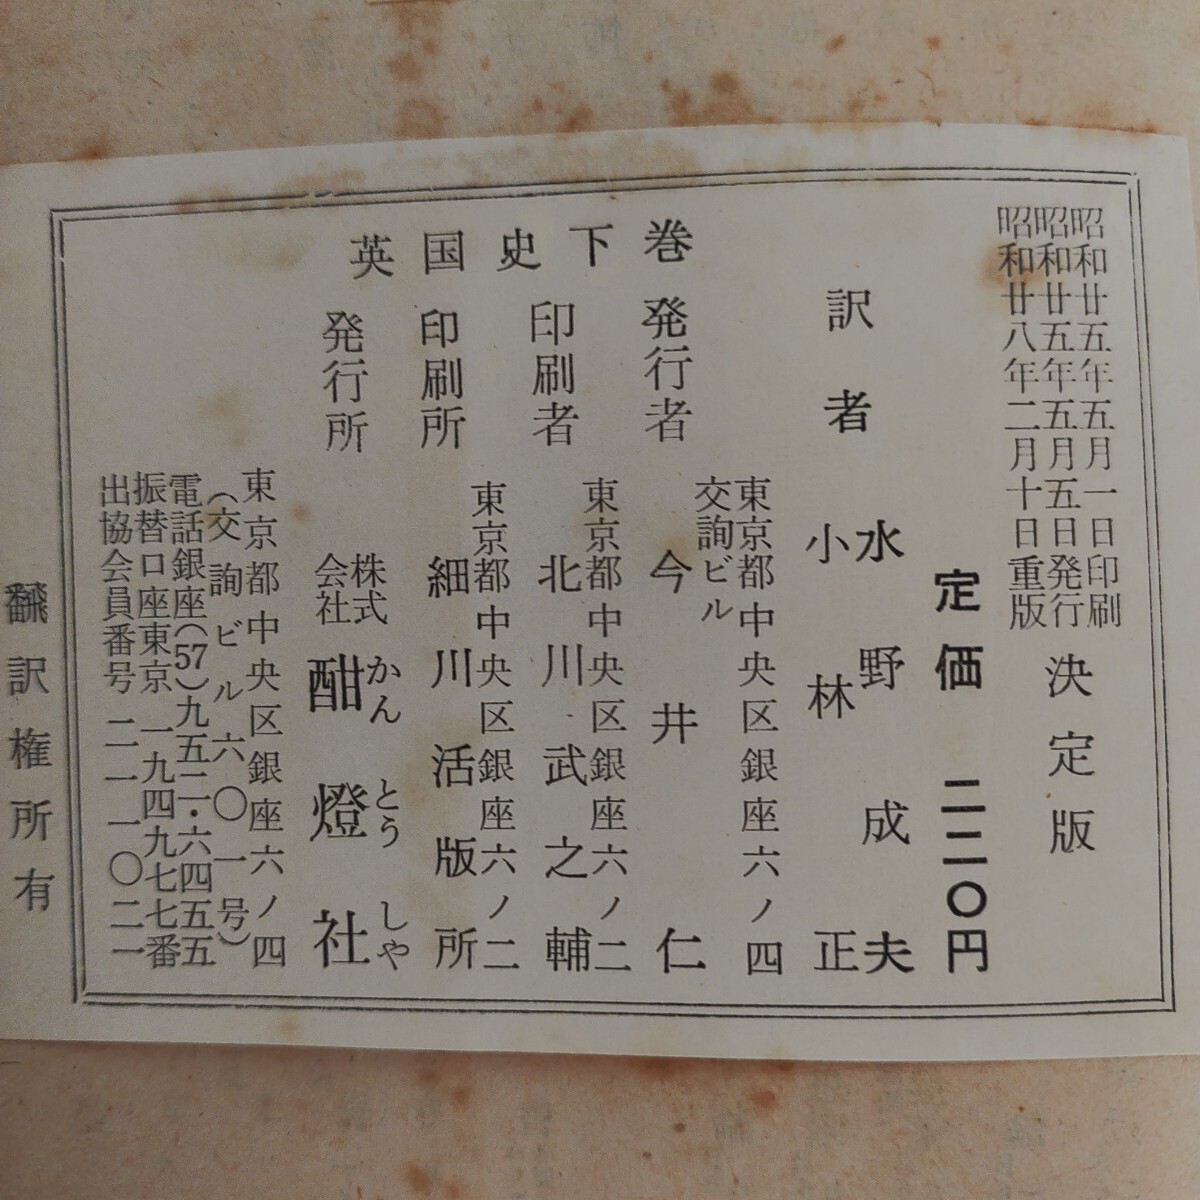 英国史下巻
昭和廿五年五月一日印刷
昭和廿五年五月五日発行
昭和廿八年二月十日重版
決定版
定価 二二〇円
訳者
水野成夫
小林正
東京都中央区銀座六ノ四
交詢ビル
発行者 今井仁
東京都中央区銀座六ノ二
印刷者 北川武之輔
東京都中央区銀座六ノ二
印刷所 細川活版所
かんとうしや
発行所 株式会社 酣燈社
東京都中央区銀座六ノ四
(交詢ビル六〇一号)
電話銀座(57)九五二一・六四五五
振替口座東京一九四九七七番
出協会員番号二一一〇二一
飜訳権所有